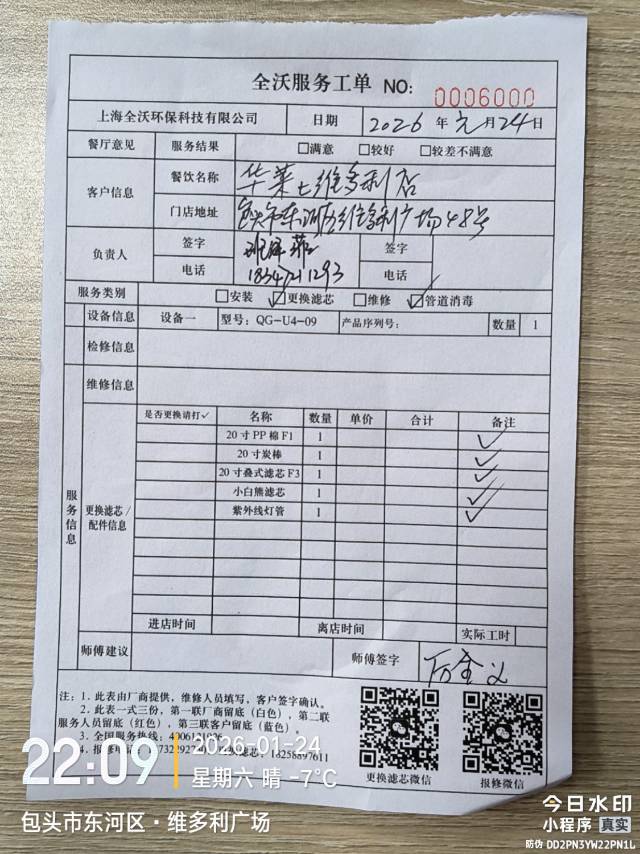 全沃服务工单 NO: 0006000
上海全沃环保科技有限公司 日期 2026 年 元 月 24 日
餐厅意见 服务结果 □满意 □较好 □较差不满意
客户信息 餐饮名称 华莱士维多利店
门店地址 包头市东河区维多利广场48号
负责人 签字 签字
电话 电话
服务类别 □安装 ☑更换滤芯 □维修 ☑管道消毒
设备信息 设备一 型号: QG-U4-09 产品序列号: 数量 1
检修信息
维修信息
服务信息 更换滤芯/配件信息
是否更换请打✓ 名称 数量 单价 合计 备注
20寸PP棉F1 1 ✓
20寸炭棒 1 ✓
20寸叠式滤芯F3 1 ✓
小白熊滤芯 1 ✓
紫外线灯管 1 ✓
进店时间 离店时间 实际工时
师傅建议 师傅签字
注: 1. 此表由厂商提供, 维修人员填写, 客户签字确认。
2. 此表一式三份, 第一联厂商留底(白色), 第二联
服务人员留底(红色), 第三联客户留底(蓝色)。
3. 全国服务热线:
4. 报修电话: 18258897611
更换滤芯微信 报修微信
22:09 2026-01-24
星期六 晴 -7℃
包头市东河区·维多利广场
今日水印
小程序 真实
防伪 DD2PN3YW22PN1L